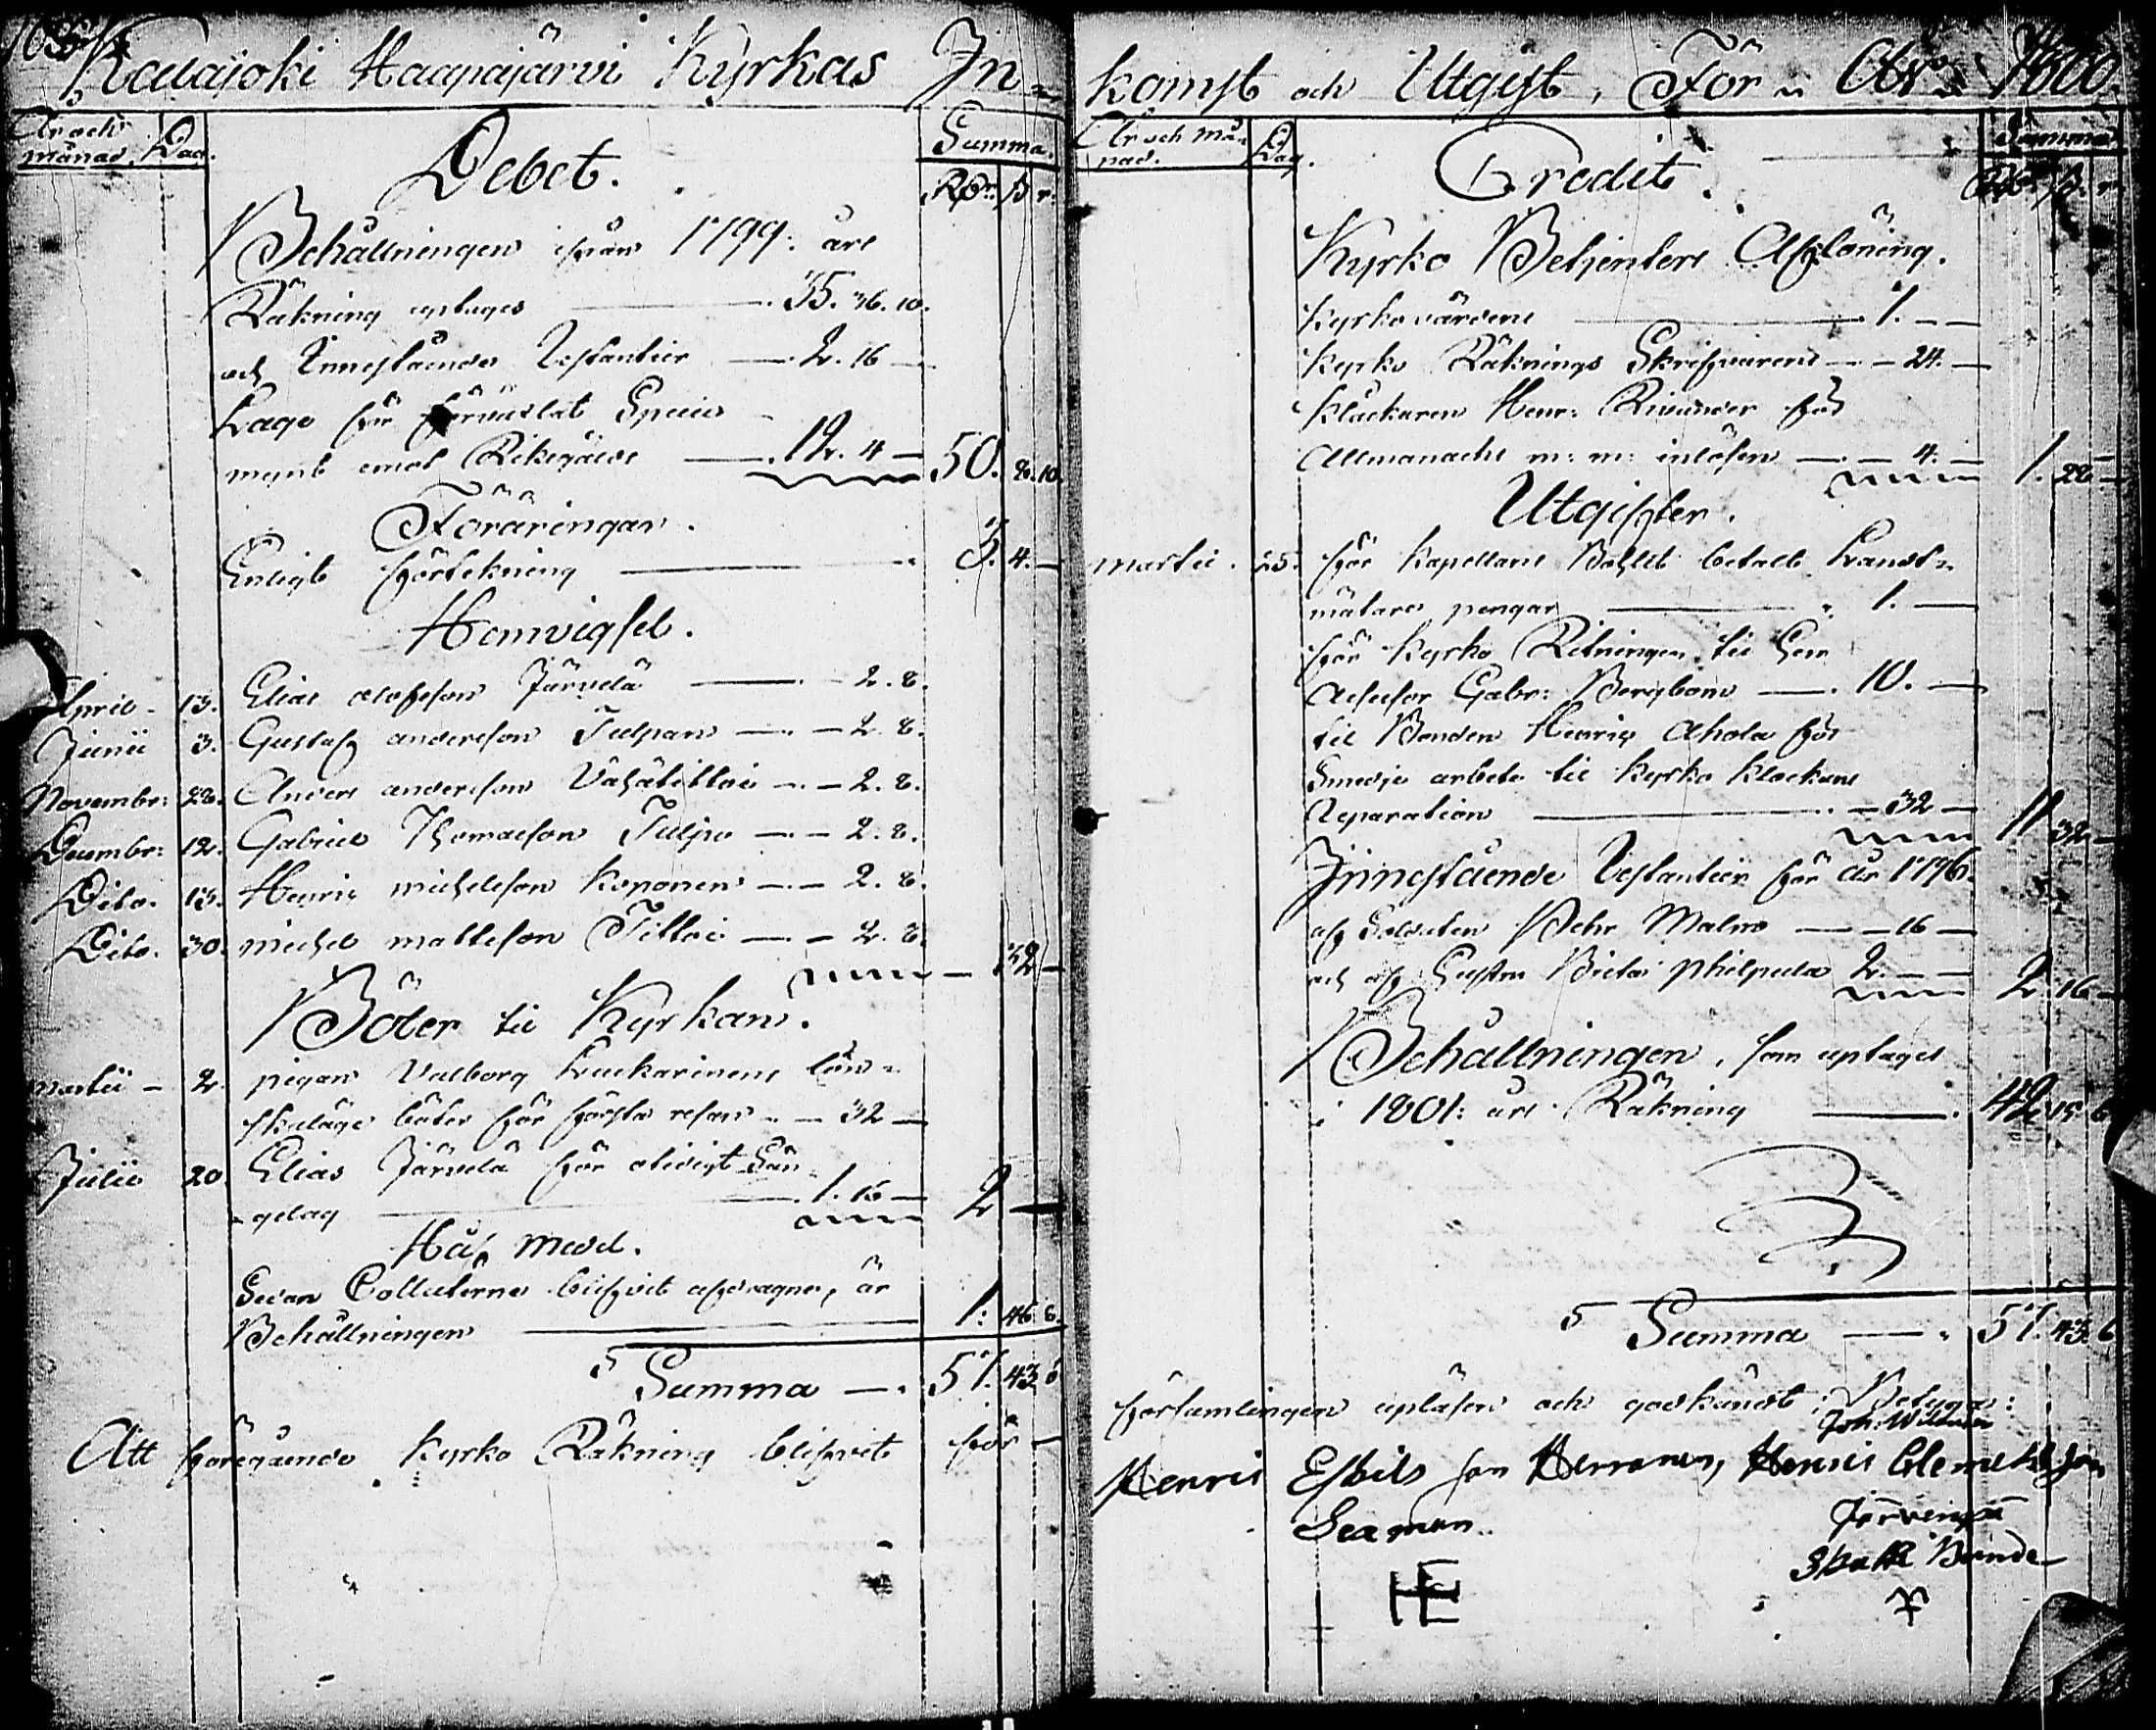 Kalajoki Haapajärvi Kyrkas In=
År och månad. Dag.
Debet.
Summa.
Rdr ß r.
Behållningen ifrån 1799: års
Räkning uptages 35. 36. 10.
och Innestående Restantier 2. 16 —
Lage för förväxlat Specie
mynt emot Riksgälds 12. 4 — 50. 8. 10.
Föräringar.
Enligt förtekning 3. 4. —
Hemvigsel.
April 13. Elias olofsson Järvelä 2. 8.
Junii 3. Gustaf andersson Tulpan 2. 8.
Novembr: 28. Anders andersson Vähätiitto 2. 8.
Decembr: 12. Gabriel Thomasson Tulpo 2. 8.
Dito. 13. Henric michelsson Koponen 2. 8.
Dito. 30. michel mattsson Tiitto 2. 8. — 32 —
Böter til Kyrkan.
martii 2. pigan Valborg Luukarinens löns=
skeläge böter för första resan 32 —
Julii 20. Elias Järvelä för otidigt Sän
=gelag 1. 16 — 2 —
Håf medel.
Sedan Collecterne blifvit afdragne, är
Behållningen 1. 46. 8.
Summa 51. 43. 6
Att föregående Kyrko Räkning blifvit för
komst och Utgift, För År 1800.
År och Månad. Dag.
Credit.
Summa
Rdr ß. r
Kyrko Betjenters Aflöning.
Kyrkovärdens 1. — —
Kyrko Räknings Skrifvarens 24. —
Klåckaren Henr: för
Allmanachs m: m: inlösen 4. — 1. 28 —
Utgifter.
martii. 25. för Kapellans Bohlet betalt Landt=
mätare pengar 1. —
för Kyrko Ritningen til Herr
Assessor Gabr: Bergbom 10. —
til Bonden Henric Ahola för
Smedje arbete til Kyrko Klockans
Reparation 32 — 11 32 —
Innestående Restantier för år 1796.
af Soldaten Pehr Malm 16 —
och af Hustru Brita Philpula 2. — — 2. 16 —
Behållningen, som uptages
i 1801: års Räkning 42. 15. 6
Summa 57. 43. 6
församlingen upläsen och godkändt; Betygar:
Joh: Willman
Henric Eskils son Herranen, Henric Clemetsson
Seaman. Järvenpä
Skatte Bonde
HE